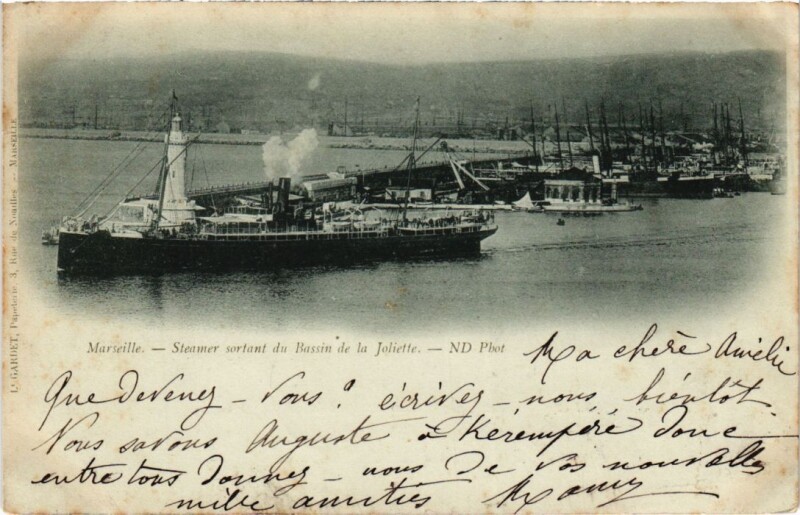 Lt GARDET, Papeterie, 3, Rue de Noailles — MARSEILLE
Marseille. — Steamer sortant du Bassin de la Joliette. — ND Phot
Ma chère Amélie
Que devenez-vous? écrivez-nous bientôt.
Nous savons Auguste à Kérempéré donc
entre tous donnez-nous de vos nouvelles
mille amitiés